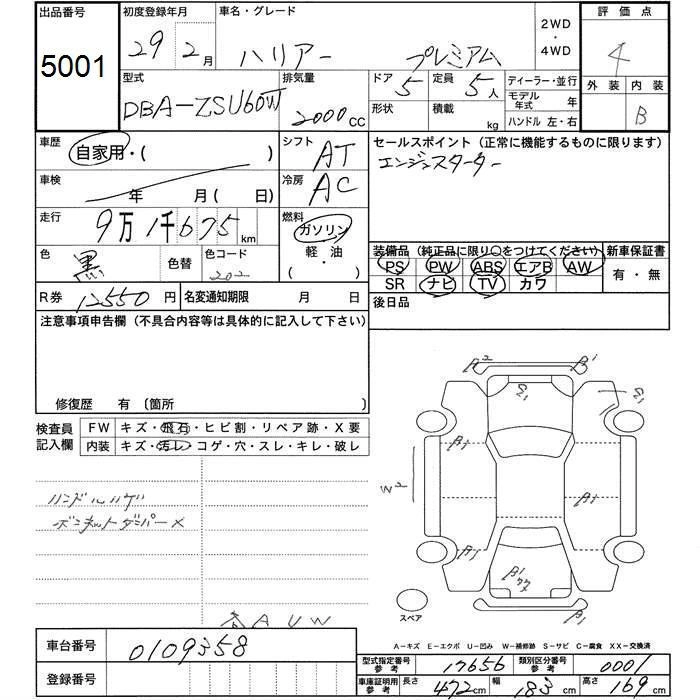 出品番号
5001
初度登録年月
29 2月
車名・グレード
ハリアー プレミアム
2WD
・
4WD
評価点
4
外装 内装
B
型式
DBA-ZSU60W
排気量
2000 CC
ドア 5
定員 5人
ディーラー・並行
モデル年式 年
形状
積載 kg
ハンドル 左・右
車歴
自家用・( )
シフト
AT
セールスポイント(正常に機能するものに限ります)
エンジンスターター
車検
年 月(日)
冷房
AC
走行
9万1千675 km
燃料
ガソリン
軽・油
( )
色
黒
色替
色コード
202
装備品(純正品に限り〇をつけてください)
PS PW ABS エアB AW
SR ナビ TV カワ
新車保証書
有・無
R券 12550円
名変通知期限 月 日
後日品
注意事項申告欄(不具合内容等は具体的に記入して下さい)
修復歴 有 〔箇所 〕
検査員
記入欄
FW キズ・飛石・ヒビ割・リペア跡・X要
内装 キズ・汚レ・コゲ・穴・スレ・キレ・破レ
ハンドルハゲ
ボンネットダンパー×
AUW
スペア
A-キズ E-エクボ U-凹み W-補修跡 S-サビ C-腐食 XX-交換済
車台番号
0109358
登録番号
型式指定番号
参考
17656
類別区分番号
参考
0001
車庫証明用
参考
長さ 472 cm
幅 183 cm
高さ 169 cm